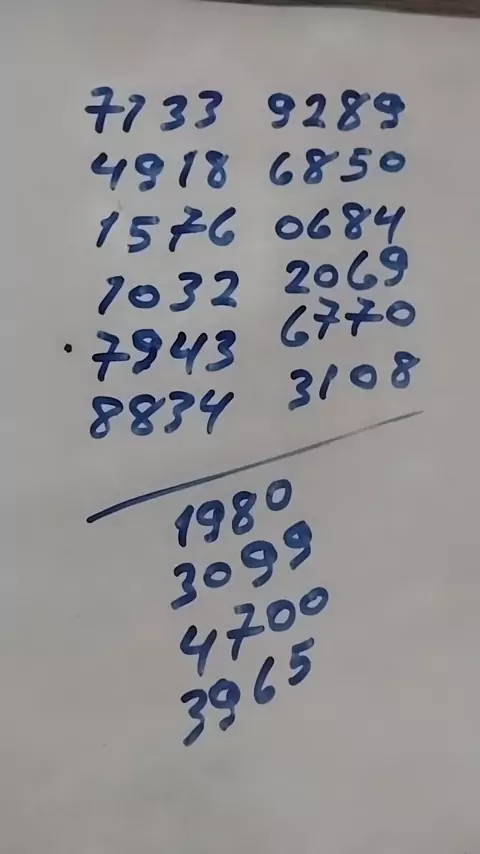 7133 9289
4918 6850
1576 0684
1032 2069
7943 6770
8834 3108
1980
3099
4700
3965